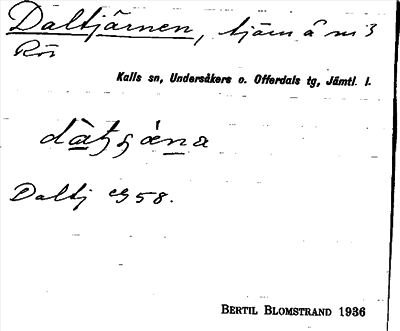 Daltjärnen, tjärn å nr 3
Rör
Kalls sn, Undersåkers o. Offerdals tg, Jämtl. l.
Daltj eg 58.
BERTIL BLOMSTRAND 1936